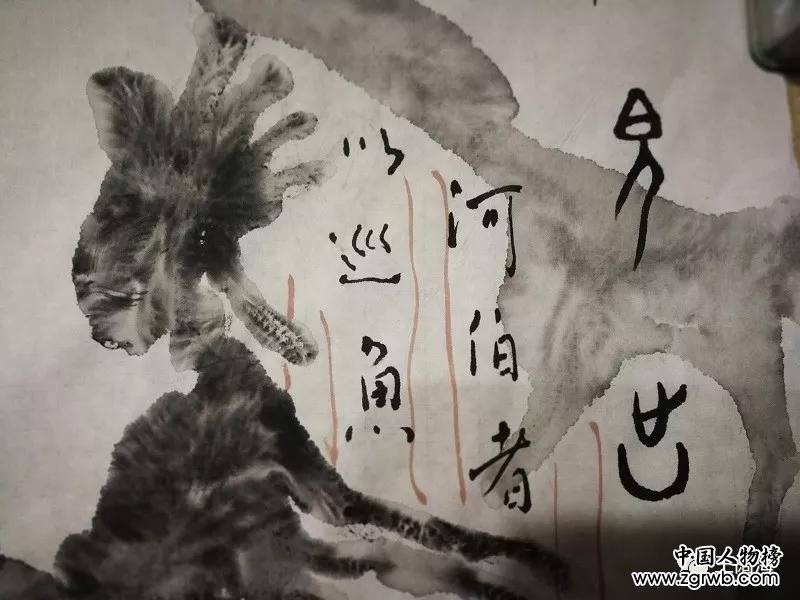 河伯者
以巡魚
中国人物榜
www.zgrwb.com